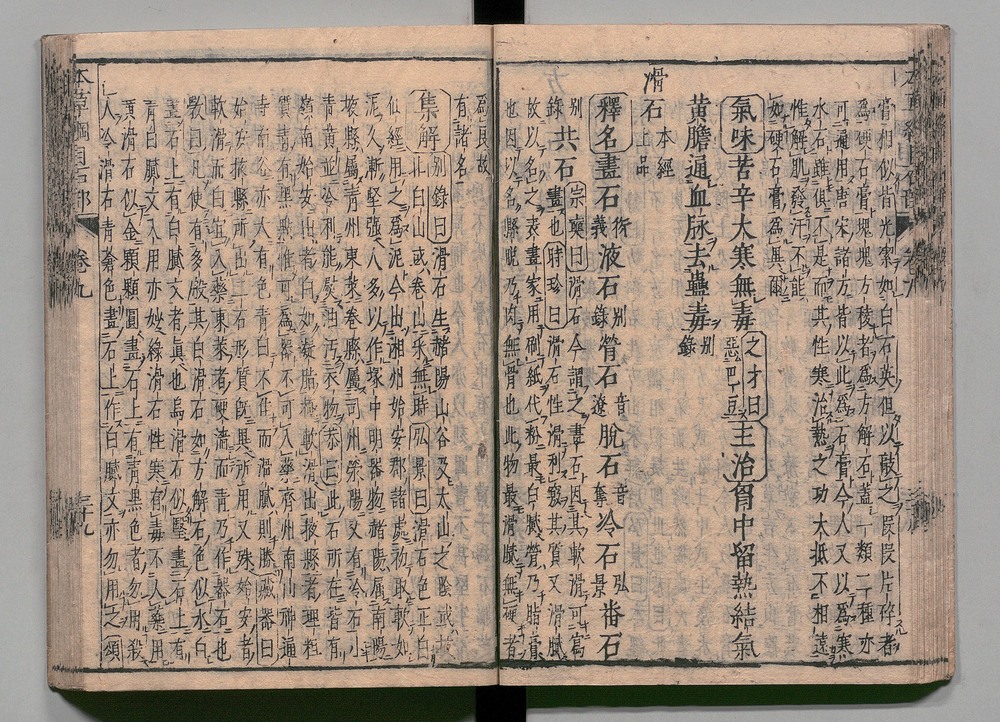 骨相似皆光絜如白石英但以敲之段段片碎者
爲硬石膏塊塊方稜者爲方解石蓋一類二種亦
可通用唐宋諸方皆以此爲石膏今人又以爲寒
水石雖俱不是而其性寒治熱之功大抵不相遠
惟解肌發汗不能
如硬石膏爲異爾
氣味苦辛大寒無毒之才曰惡巴豆主治胷中留熱結氣
黄膽通血脉去蠱毒別錄
滑石本經上品
釋名畫石衍義液石別錄膋石音遼脫石音奪冷石弘景番石
別錄共石宗奭曰滑石今謂之畫石因其軟滑可寫
畫也時珍曰滑石性滑利竅其質又滑膩
故以名之表畫家用刷紙代粉最白膩膋乃脂膏
也因以名縣脫乃肉無骨也此物最滑膩無硬者
爲良故
有諸名
集解別錄曰滑石生赭陽山谷及太山之陰或掖
北白山或卷山采無時弘景曰滑石色正白
仙經用之爲泥今出湘州始安郡諸處初取軟如
泥久漸堅强人多以作塚中明器物赭陽属南陽
掖縣屬青州東萊卷縣屬司州滎陽又有冷石小
青黄並冷利能熨油污衣物恭曰此石所在皆有
嶺南始安出者白如凝脂極軟滑出掖縣者理粗
質青有黑點惟可爲器不可入藥齊州南山神通
寺南谷亦大有色青白不佳而滑膩則勝藏器曰
始安掖縣所出二石形質既異所用又殊始安者
軟滑而白宜入藥東萊者硬澁而青乃作器石
斅曰凡使有多般其白滑石如方解石色似冰白
畫石上有白膩文者眞也烏滑石似黳畫石上有
青白膩文入用亦妙綠滑石性寒有毒不入藥用
黄滑石似金顆顆圓畫石上有青黑色者勿用殺
人冷滑石青蒼色畫石上作白膩文亦勿用之頌
本草綱目石部
卷九
三十九